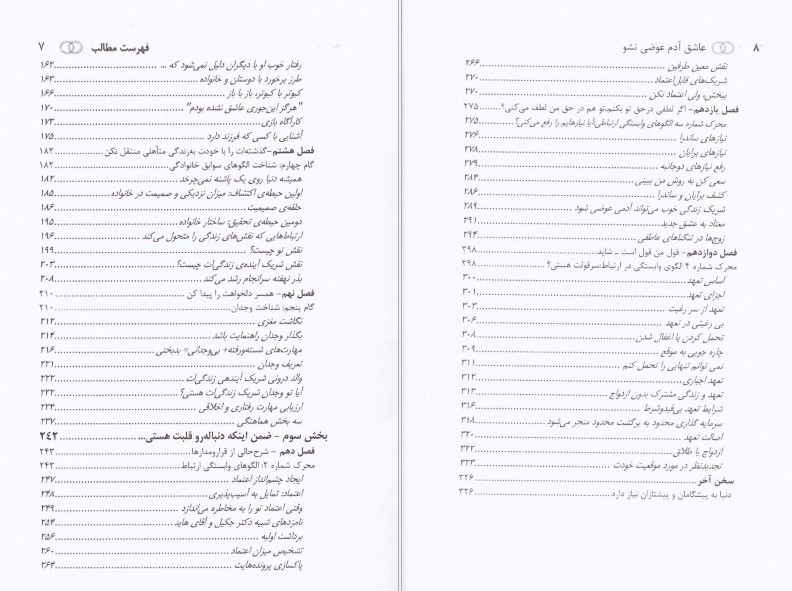 فهرست مطالب ۷
رفتار خوب او با دیگران دلیل نمی‌شود که ... ۱۶۲
طرز برخورد با دوستان و خانواده ۱۶۳
کبوتر با کبوتر، باز با باز ۱۶۶
"هرگز این‌جوری عاشق نشده بودم" ۱۷۰
کارآگاه بازی ۱۷۳
آشنایی با کسی که فرزند دارد ۱۷۵
فصل هشتم-گذشته‌ات را با خودت به‌زندگی متأهلی منتقل نکن ۱۸۲
گام چهارم: شناخت الگوهای سوابق خانوادگی ۱۸۲
همیشه دنیا روی یک پاشنه نمی‌چرخد ۱۸۲
اولین حیطه‌ی اکتشاف: میزان نزدیکی و صمیمت در خانواده ۱۸۵
حلقه‌ی صمیمیت ۱۸۶
دومین حیطه‌ی تحقیق: ساختار خانواده ۱۹۵
ارتباط‌هایی که نقش‌های زندگی را متحول می‌کند ۱۹۶
نقش تو چیست؟ ۱۹۹
نقش شریک آینده‌ی زندگی‌ات چیست؟ ۲۰۳
بذر نهفته سرانجام رشد می‌کند ۲۰۸
فصل نهم- همسر دلخواهت را پیدا کن ۲۱۰
گام پنجم: شناخت وجدان ۲۱۰
نگاشت مغزی ۲۱۲
بگذار وجدان راهنمایت باشد ۲۱۴
مهارت‌های شسته‌ورفته+ بی‌وجدانی= بدبختی ۲۱۶
تعریف وجدان ۲۲۱
والد درونی شریک آیندهی زندگی‌ات ۲۲۲
آیا تو وجدان شریک زندگی‌ات هستی؟ ۲۳۲
ارزیابی مهارت رفتاری و اخلاقی ۲۳۴
سه بخش هماهنگی ۲۳۷
بخش سوم - ضمن اینکه دنباله‌رو قلبت هستی... ۲۴۲
فصل دهم - شرح‌حالی از قرارومدارها ۲۴۳
محرک شماره ۲: الگوهای وابستگی ارتباط ۲۴۳
ایجاد چشم‌انداز اعتماد ۲۴۷
اعتماد: تمایل به آسیب‌پذیری ۲۴۸
وقتی اعتماد تو را به مخاطره می‌اندازد ۲۴۹
نامزدهای شبیه دکتر جکیل و آقای هاید ۲۵۴
برداشت اولیه ۲۵۶
تشخیص میزان اعتماد ۲۶۰
پاکسازی پرونده‌هایت ۲۶۴
۸ عاشق آدم عوضی نشو
نقش معین طرفین ۲۶۶
شریک‌های قابل‌اعتماد ۲۷۰
ببخش، ولی اعتماد نکن ۲۷۰
فصل یازدهم- اگر لطفی درحق تو بکنم،تو هم در حق من لطف می‌کنی؟ ۲۷۵
محرک شماره سه الگوهای وابستگی ارتباطی:آیا نیازهایم را رفع می‌کنی؟ ۲۷۵
نیازهای ساندرا ۲۷۶
نیازهای برایان ۲۷۸
رفع نیازهای دوجانبه ۲۷۹
سعی کن به روش من ببینی ۲۸۴
کشف برایان و ساندرا ۲۸۶
شریک زندگی خوب می‌تواند آدمی عوضی شود ۲۸۹
معتاد به عشق جدید ۲۹۱
زوج‌ها در تنگناهای عاطفی ۲۹۴
فصل دوازدهم- قول من قول است ـ شاید ۲۹۸
محرک شماره ۴ الگوی وابستگی در ارتباط:سرقولت هستی؟ ۲۹۸
اساس تعهد ۳۰۰
اجزای تعهد ۳۰۱
تعهد از سر رغبت ۳۰۳
بی رغبتی در تعهد ۳۰۶
تحمل کردن یا اغفال شدن ۳۰۸
چاره جویی به موقع ۳۰۹
نمی توانم تنهایی را تحمل کنم ۳۱۱
تعهد اجباری ۳۱۲
تعهد و زندگی مشترک بدون ازدواج ۳۱۳
شرایط تعهد بی‌قیدوشرط ۳۱۶
سرمایه گذاری محدود به برگشت محدود منجر می‌شود ۳۱۸
اصالت تعهد ۳۲۰
ازدواج یا طلاق ۳۲۲
تجدیدنظر در مورد موقعیت خودت ۳۲۳
سخن آخر ۳۲۶
دنیا به پیشگامان و پیشتازان نیاز دارد ۳۲۶